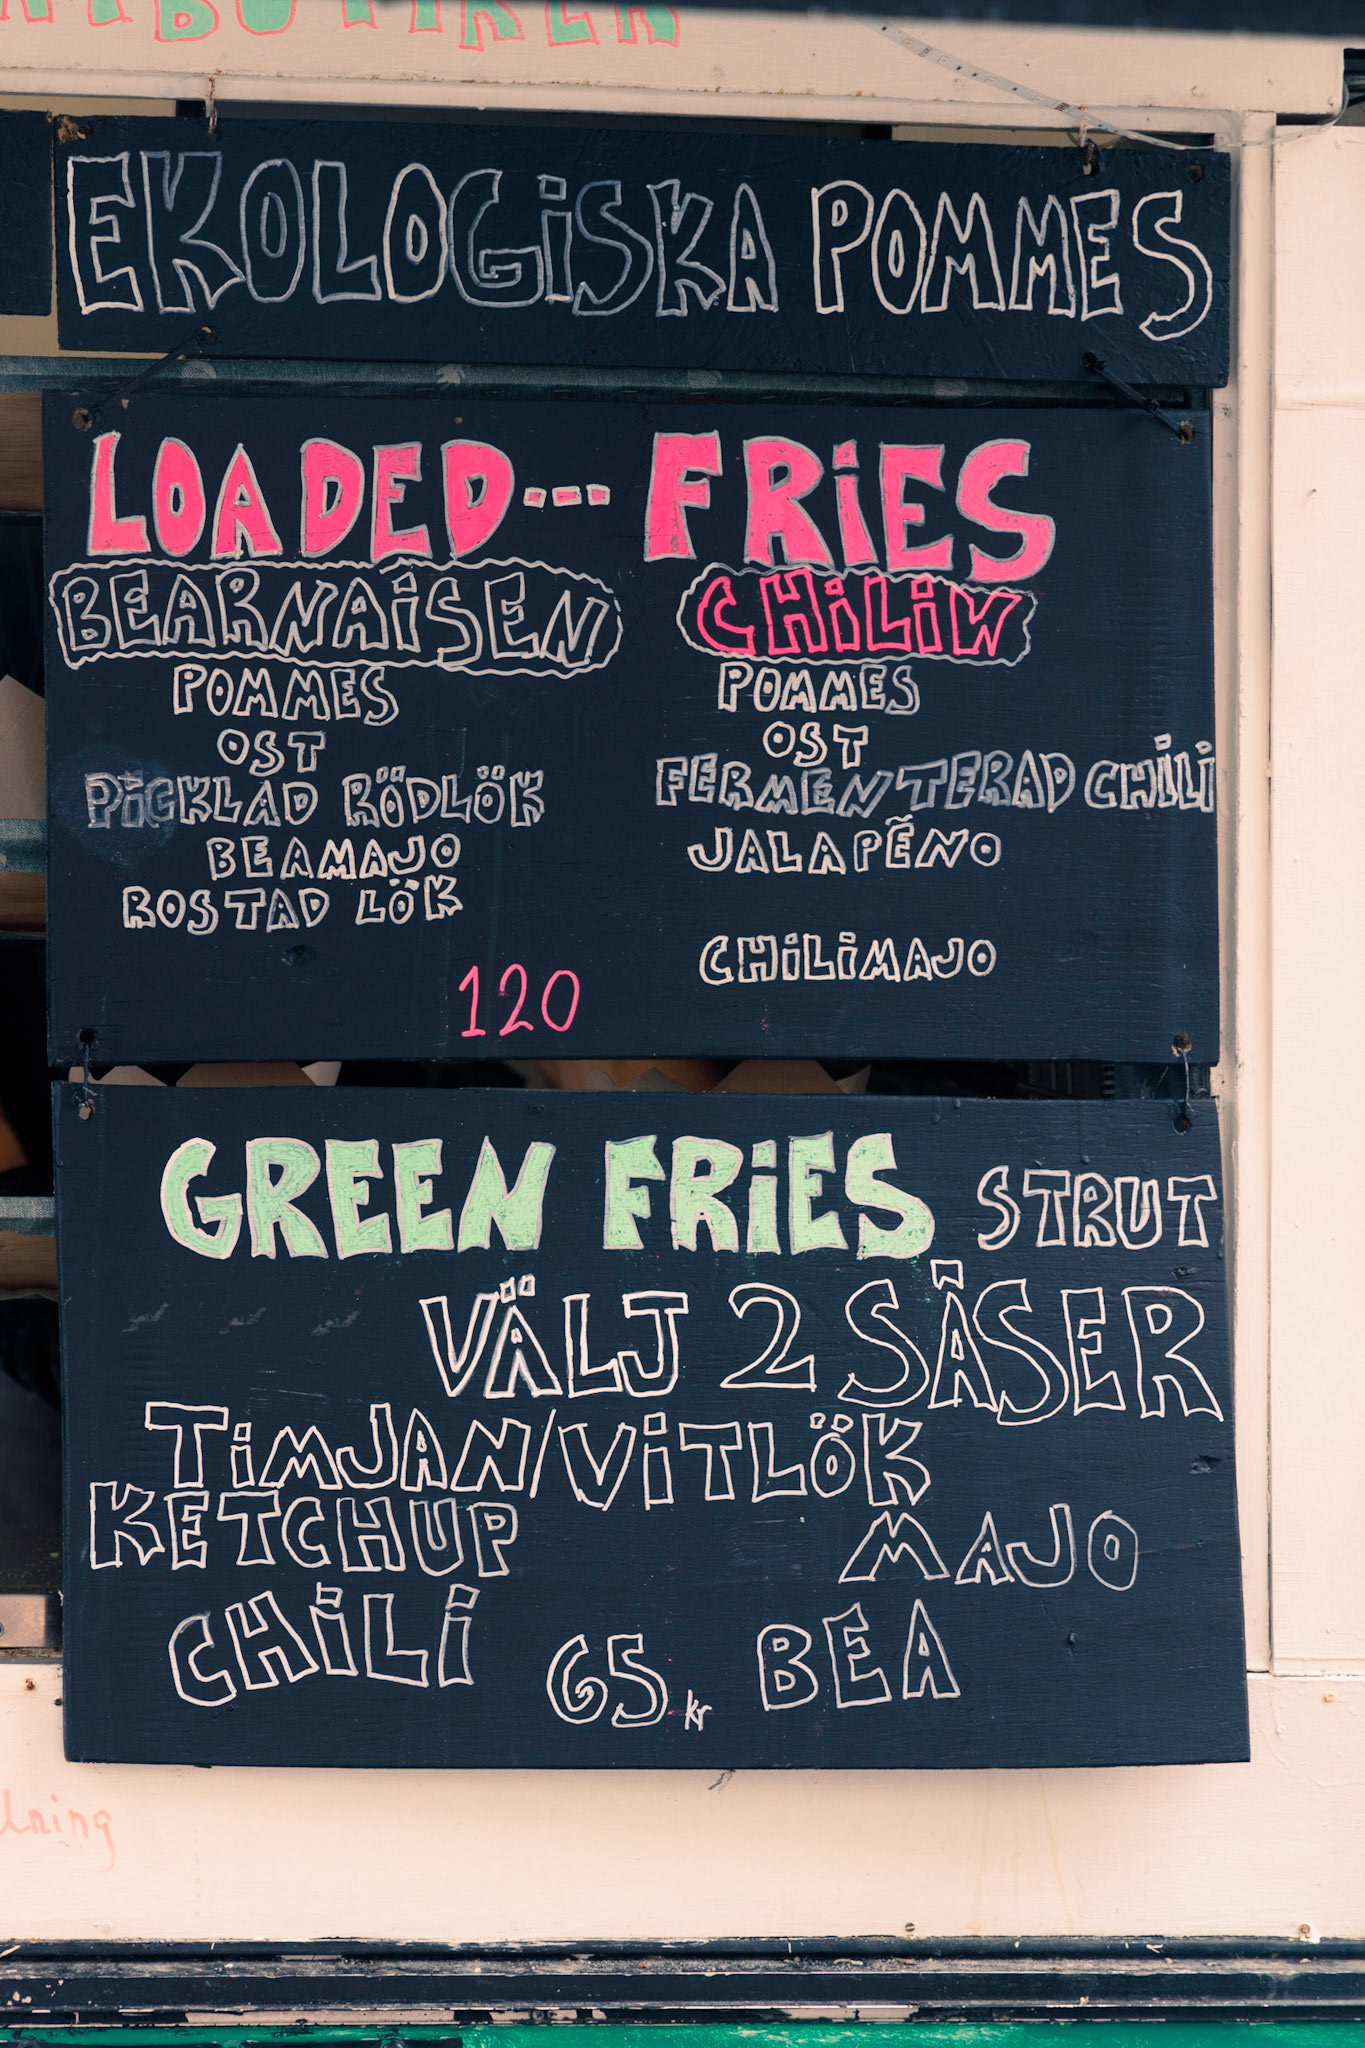 EKOLOGiSKA POMMES
LOADED--- FRiES
BEARNAiSEN
POMMES
OST
PiCKLAD RÖDLÖK
BEAMAJO
ROSTAD LÖK
CHiLiW
POMMES
OST
FERMENTERAD CHiLi
JALAPĒNO
CHiLiMAJO
120
GREEN FRiES STRUT
VÄLJ 2 SÅSER
TiMJAN/ViTLÖK
MAJO
KETCHUP
CHiLi
65 kr
BEA